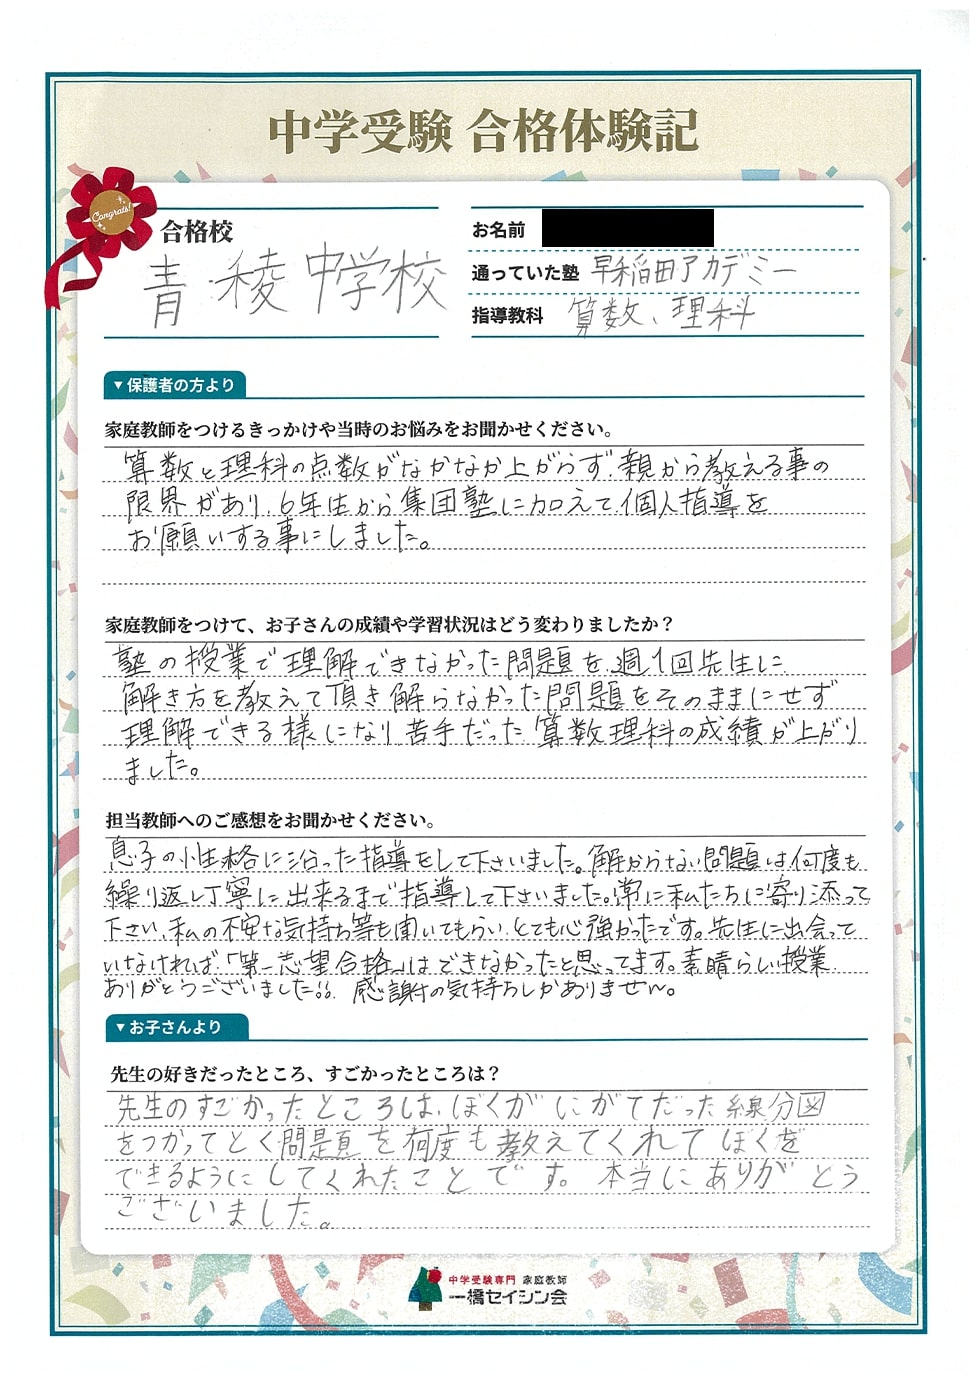 中学受験 合格体験記
Congrats!
合格校
青稜中学校
お名前
通っていた塾 早稲田アカデミー
指導教科 算数、理科
▼保護者の方より
家庭教師をつけるきっかけや当時のお悩みをお聞かせください。
算数と理科の点数がなかなか上がらず、親から教える事の
限界があり、6年生から集団塾に加えて個人指導を
お願いする事にしました。
家庭教師をつけて、お子さんの成績や学習状況はどう変わりましたか？
塾の授業で理解できなかった問題を、週1回先生に
解き方を教えて頂き解らなかった問題をそのままにせず
理解できる様になり、苦手だった算数理科の成績が上がり
ました。
担当教師へのご感想をお聞かせください。
息子の性格に沿った指導をして下さいました。解からない問題は何度も
繰り返し丁寧に出来るまで指導して下さいました。常に私たちに寄り添って
下さい、私の不安な気持ち等も聞いてもらい、とても心強かったです。先生に出会って
いなければ、「第一志望合格」はできなかったと思ってます。素晴らしい授業
ありがとうございました!! 感謝の気持ちしかありません。
▼お子さんより
先生の好きだったところ、すごかったところは？
先生のすごかったところは、ぼくがにがてだった線分図
をつかってとく問題を何度も教えてくれてぼくを
できるようにしてくれたことです。本当にありがとう
ございました。
中学受験専門 家庭教師
一橋セイシン会